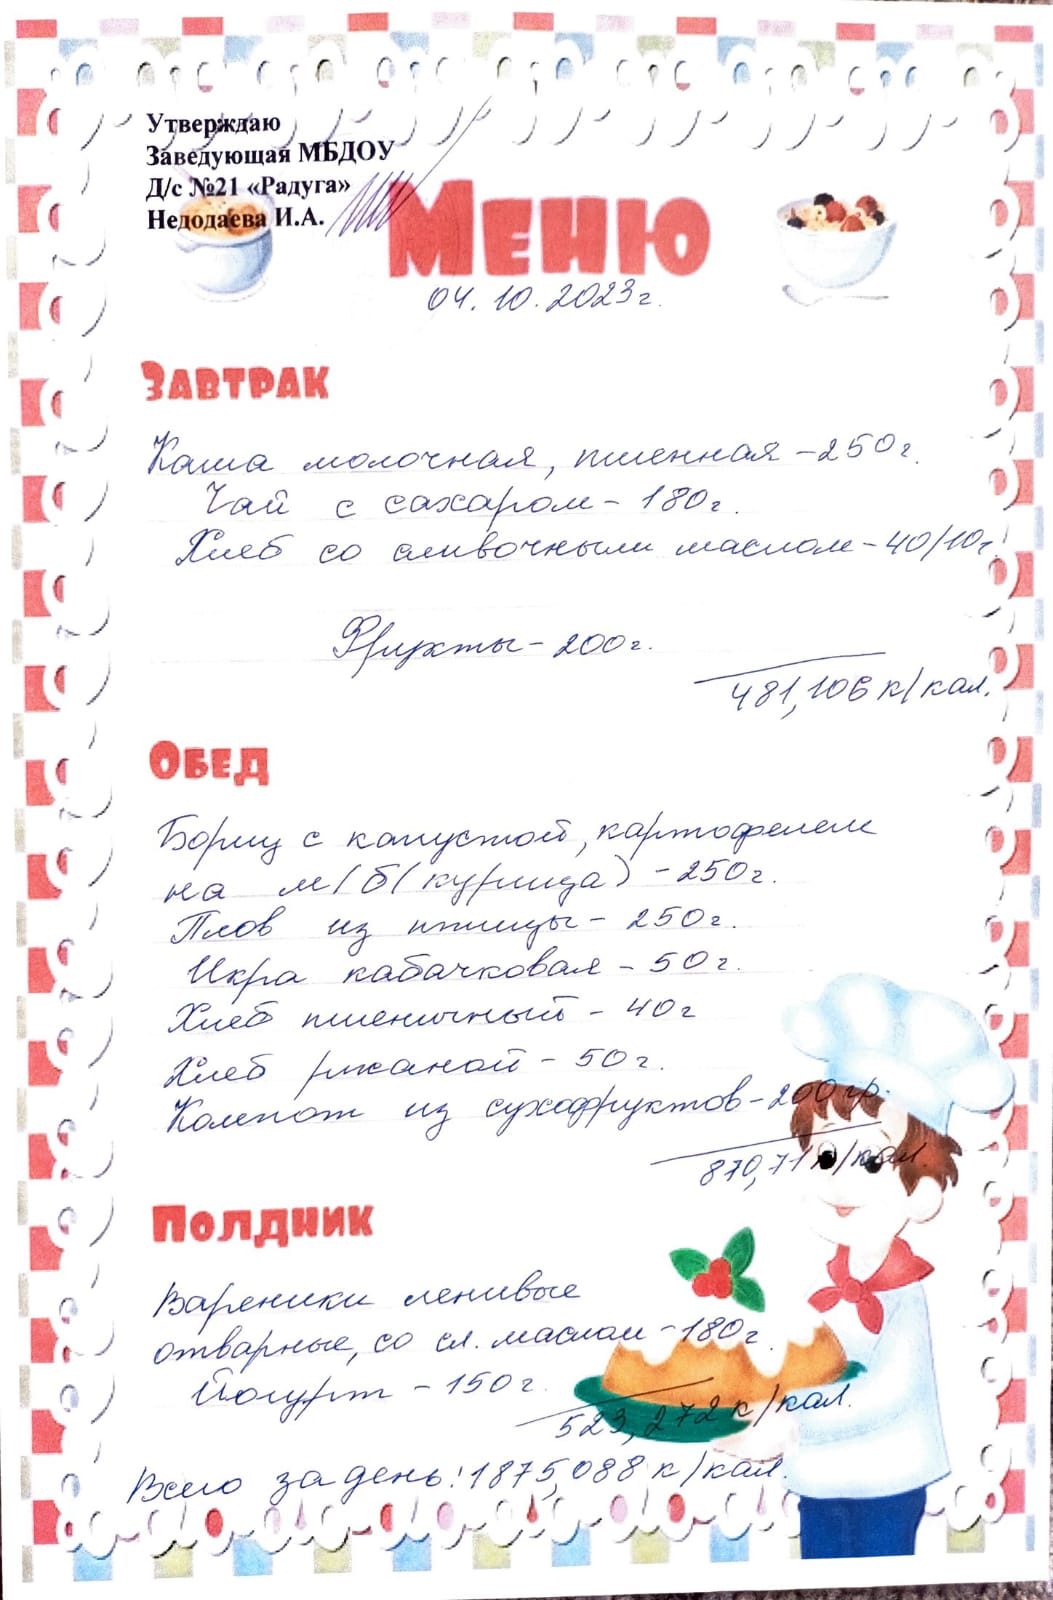 Утверждаю
Заведующая МБДОУ
Д/с №21 «Радуга»
Недодаева И.А.
Меню
04.10.2023г.
Завтрак
Каша молочная, пшенная - 250г.
Чай с сахаром - 180г.
Хлеб со сливочным маслом - 40/10г.
Фрукты - 200г.
481,106 к/кал.
Обед
Борщ с капустой, картофелем
на м/б (курица) - 250г.
Плов из птицы - 250г.
Икра кабачковая - 50г.
Хлеб пшеничный - 40г
Хлеб ржаной - 50г.
Компот из сухофруктов - 200гр.
870,71 к/кал.
Полдник
Вареники ленивые
отварные, со сл. маслом - 180г.
Йогурт - 150г.
523,272 к/кал.
Всего за день: 1875,088 к/кал.